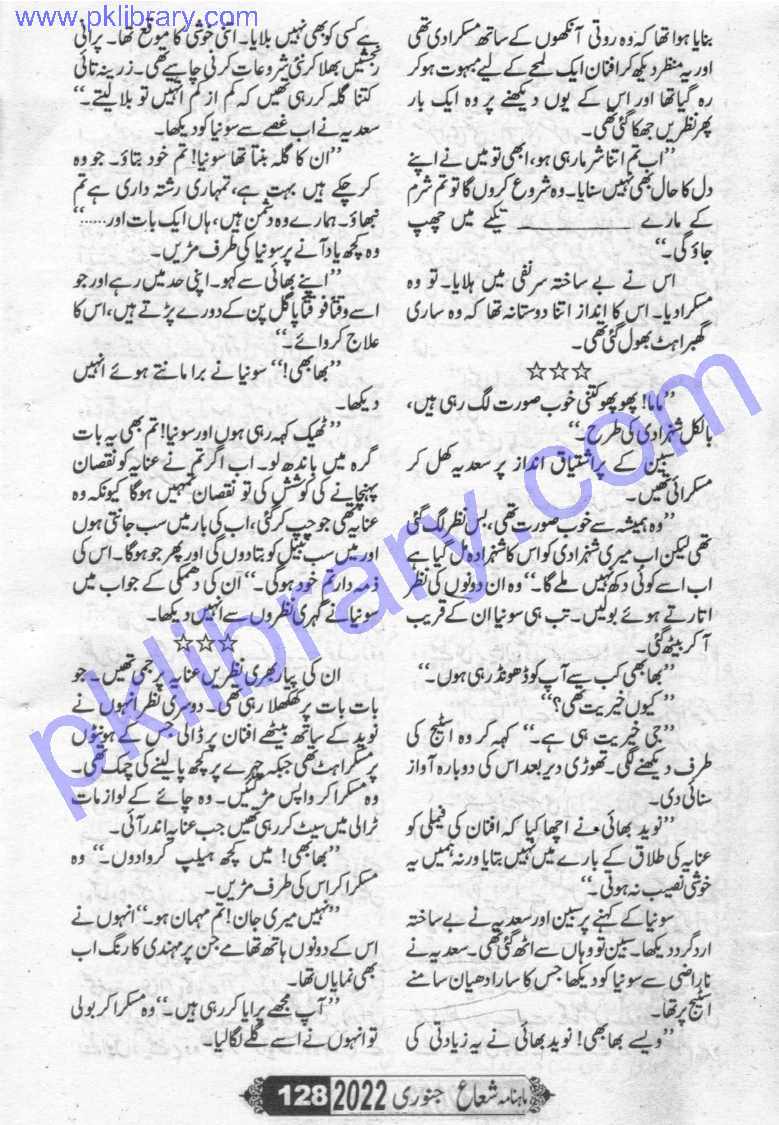 www.pklibrary.com
بنایا ہوا تھا کہ وہ روتی آنکھوں کے ساتھ مسکرا دی تھی
اور یہ منظر دیکھ کر افنان ایک لمحے کے لیے مبہوت ہو کر
رہ گیا تھا اور اس کے یوں دیکھنے پر وہ ایک بار
پھر نظریں جھکا گئی تھی۔
”اب تم اتنا شرما رہی ہو، ابھی تو میں نے اپنے
دل کا حال بھی نہیں سنایا۔ وہ شروع کروں گا تو تم شرم
کے مارے ــــــــــــــ تکیے میں چھپ
جاؤ گی۔“
اس نے بے ساختہ سر نفی میں ہلایا۔ تو وہ
مسکرا دیا۔ اس کا انداز اتنا دوستانہ تھا کہ وہ ساری
گھبراہٹ بھول گئی تھی۔
☆☆☆
”ماما! پھوپھو کتنی خوب صورت لگ رہی ہیں،
بالکل شہزادی کی طرح۔“
سبین کے پر اشتیاق انداز پر سعدیہ کھل کر
مسکرائی تھیں۔
”وہ ہمیشہ سے خوب صورت تھی، بس نظر لگ گئی
تھی لیکن اب میری شہزادی کو اس کا شہزادہ مل گیا ہے
اب اسے کوئی دکھ نہیں ملے گا۔“ وہ ان دونوں کی نظر
اتارتے ہوئے بولیں۔ تب ہی سونیا ان کے قریب
آ کر بیٹھ گئی۔
”بھابھی کب سے آپ کو ڈھونڈ رہی ہوں۔“
”کیوں خیریت تھی؟“
”جی خیریت ہی ہے۔“ کہہ کر وہ اسٹیج کی
طرف دیکھنے لگی۔ تھوڑی دیر بعد اس کی دوبارہ آواز
سنائی دی۔
”نوید بھائی نے اچھا کیا کہ افنان کی فیملی کو
عنایہ کی طلاق کے بارے میں نہیں بتایا ورنہ ہمیں یہ
خوشی نصیب نہ ہوتی۔“
سونیا کے کہنے پر سبین اور سعدیہ نے بے ساختہ
ارد گرد دیکھا۔ سبین تو وہاں سے اٹھ گئی تھی۔ سعدیہ نے
ناراضی سے سونیا کو دیکھا جس کا سارا دھیان سامنے
اسٹیج پر تھا۔
”ویسے بھابھی! نوید بھائی نے یہ زیادتی کی
ہے کسی کو بھی نہیں بلایا۔ اتنی خوشی کا موقع تھا۔ پرانی
رنجشیں بھلا کر نئی شروعات کرنی چاہیے تھی۔ زرینہ تائی
کتنا گلہ کر رہی تھیں کہ کم از کم انہیں تو بلا لیتے۔“
سعدیہ نے اب غصے سے سونیا کو دیکھا۔
”ان کا گلہ بنتا تھا سونیا! تم خود بتاؤ۔ جو وہ
کر چکے ہیں بہت ہے، تمہاری رشتہ داری ہے تم
نبھاؤ۔ ہمارے وہ دشمن ہیں، ہاں ایک بات اور......“
وہ کچھ یاد آنے پر سونیا کی طرف مڑیں۔
”اپنے بھائی سے کہو۔ اپنی حد میں رہے اور جو
اسے وقتاً فوقتاً پاگل پن کے دورے پڑتے ہیں، اس کا
علاج کروائے۔“
”بھابھی!“ سونیا نے برا مانتے ہوئے انہیں
دیکھا۔
”ٹھیک کہہ رہی ہوں اور سونیا! تم بھی یہ بات
گرہ میں باندھ لو۔ اب اگر تم نے عنایہ کو نقصان
پہنچانے کی کوشش کی تو نقصان تمہیں ہوگا کیونکہ وہ
عنایہ تھی جو چپ کر گئی، اب کی بار میں سب جانتی ہوں
اور میں سب نبیل کو بتا دوں گی اور پھر جو ہوگا۔ اس کی
ذمہ دار تم خود ہوگی۔“ ان کی دھمکی کے جواب میں
سونیا نے گہری نظروں سے انہیں دیکھا۔
☆☆☆
ان کی پیار بھری نظریں عنایہ پر جمی تھیں۔ جو
بات بات پر کھلکھلا رہی تھی۔ دوسری نظر انہوں نے
نوید کے ساتھ بیٹھے افنان پر ڈالی جس کے ہونٹوں
پر مسکراہٹ تھی جبکہ چہرے پر کچھ پا لینے کی چمک تھی۔
وہ مسکرا کر واپس مڑ گئیں۔ وہ چائے کے لوازمات
ٹرالی میں سیٹ کر رہی تھیں جب عنایہ اندر آئی۔
”بھابھی! میں کچھ ہیلپ کروا دوں۔“ وہ
مسکرا کر اس کی طرف مڑیں۔
”نہیں میری جان! تم مہمان ہو۔“ انہوں نے
اس کے دونوں ہاتھ تھامے جن پر مہندی کا رنگ اب
بھی نمایاں تھا۔
”آپ مجھے پرایا کر رہی ہیں۔“ وہ مسکرا کر بولی
تو انہوں نے اسے گلے لگا لیا۔
pklibrary.com
ماہنامہ شعاع جنوری 2022 128